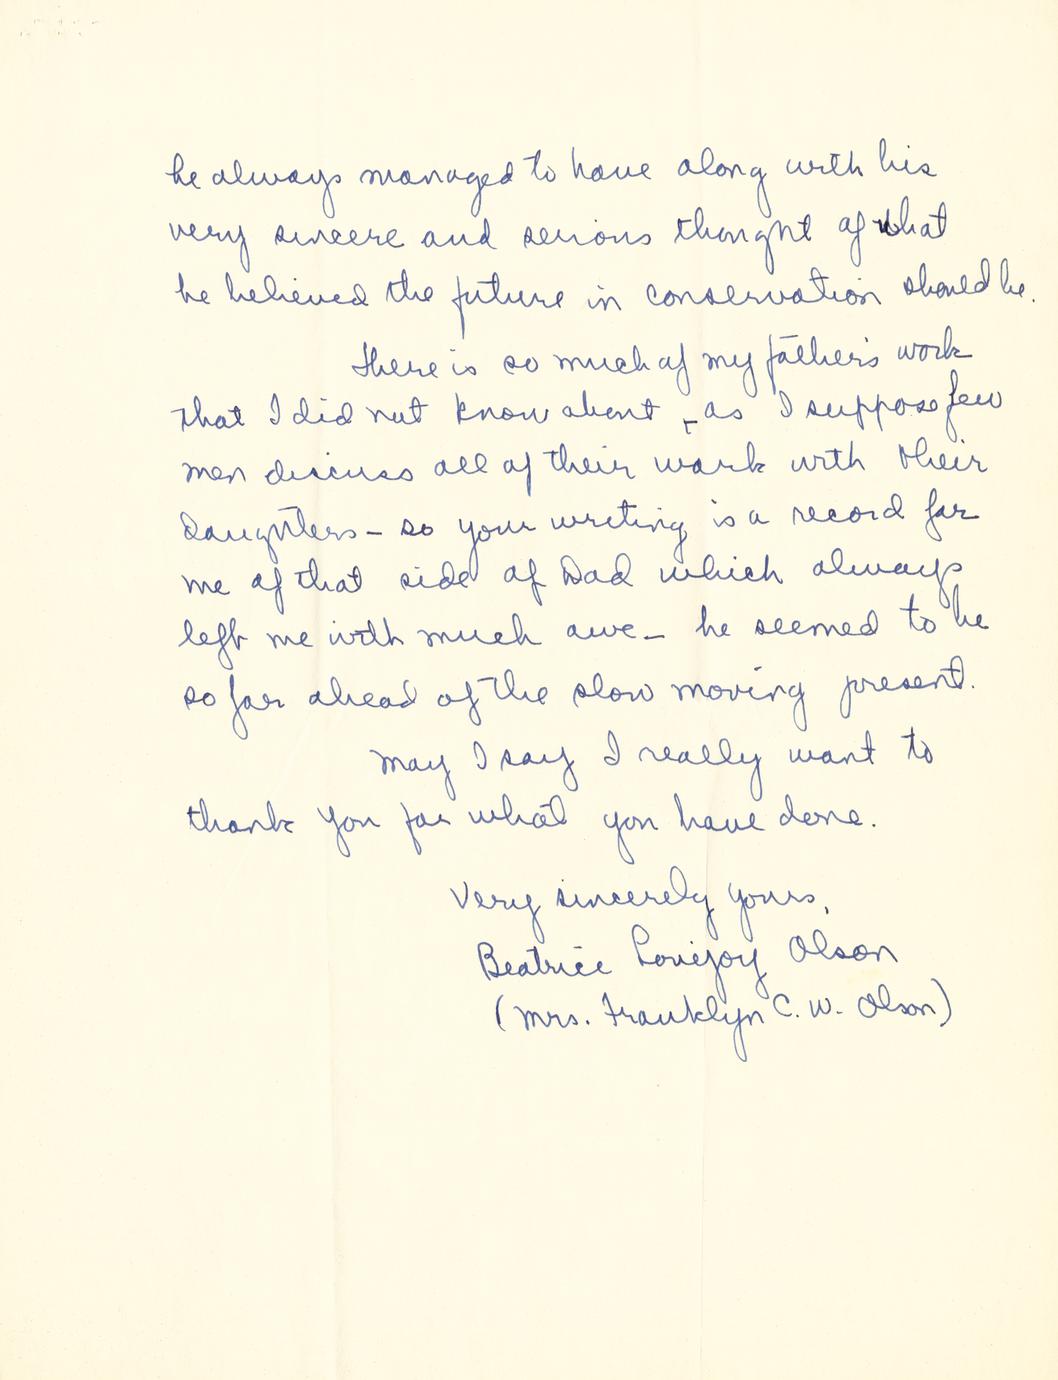 he always managed to have along with his
very sincere and serious thought of what
he believed the future in conservation should be.
There is so much of my father's work
that I did not know about - as I suppose few
men discuss all of their work with their
daughters - so your writing is a record for
me of that side of Dad which always
left me with much awe - he seemed to be
so far ahead of the slow moving present.
May I say I really want to
thank you for what you have done.
Very sincerely yours,
Beatrice Lovejoy Olson
(Mrs. Franklyn C. W. Olson)